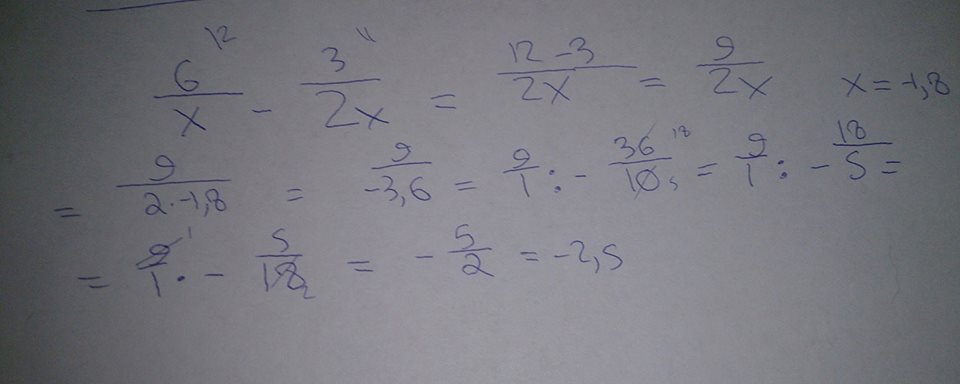 6^{\2} / x - 3^{\1} / 2x = 12 - 3 / 2x = 9 / 2x x = -1,8
= 9 / 2 · -1,8 = 9 / -3,6 = 9 / 1 : - 36^{18} / 10_{5} = 9 / 1 : - 18 / 5 =
= 9^{1} / 1 · - 5 / 18_{2} = - 5 / 2 = -2,5